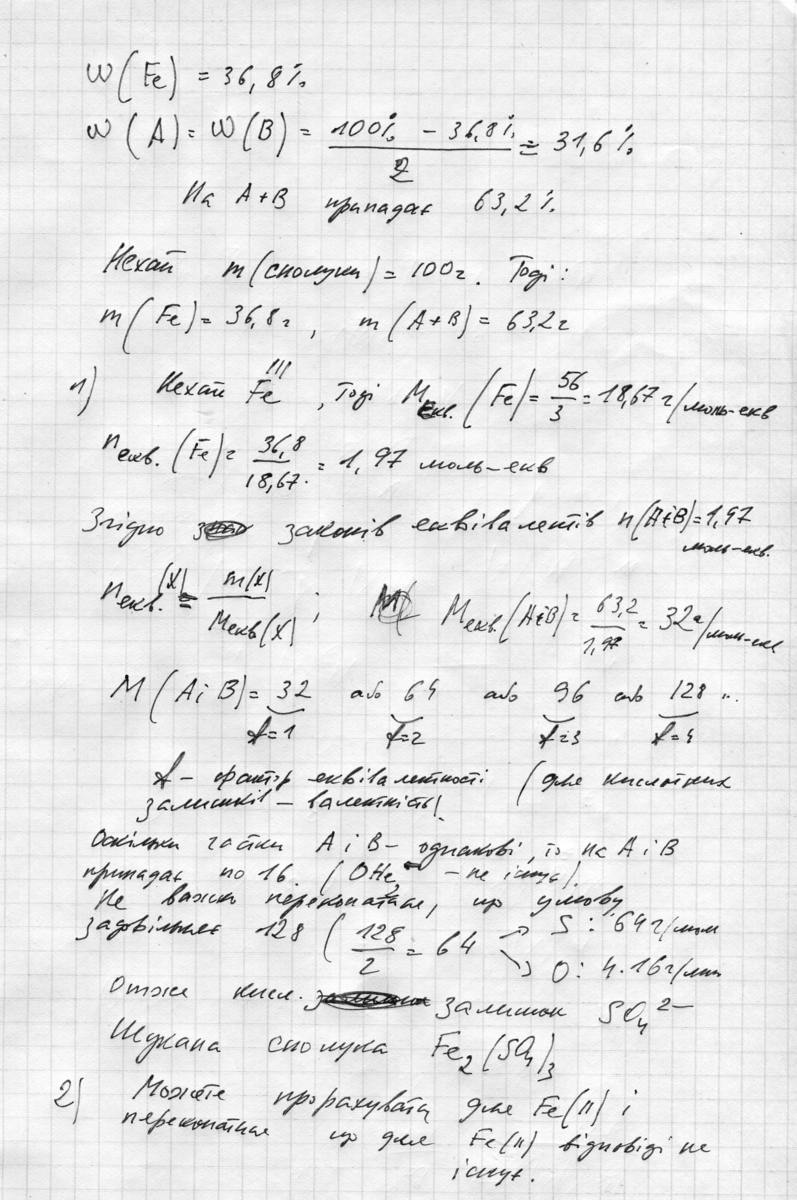 w(Fe) = 36,8%
w(A) = w(B) = (100% - 36,8%)/2 = 31,6%
На A+B припадає 63,2%
Нехай m(сполуки) = 100г. Тоді:
m(Fe) = 36,8г, m(A+B) = 63,2г
1) Нехай Fe^III, тоді Mекв.(Fe) = 56/3 = 18,67 г/моль-екв
nекв.(Fe) = 36,8/18,67 = 1,97 моль-екв
Згідно законів еквівалентів n(AiB) = 1,97 моль-екв.
nекв.(X) = m(X)/Mекв(X); Mекв.(AiB) = 63,2/1,97 = 32г/моль-екв
M(AiB) = 32 або 64 або 96 або 128 ..
f=1 f=2 f=3 f=4
f – фактор еквівалентності (для кислотних
залишків – валентність).
Оскільки частки A i B – однакові, то на A i B
припадає по 16. (OHe – не існує).
Не важко переконатися, що умову
задовільняє 128 (128/2 = 64 → S: 64г/моль
→ O: 4·16г/моль
Отже кисл. залишок SO₄²⁻
Шукана сполука Fe₂(SO₄)₃
2) Можете прорахувати для Fe(II) i
переконатися що для Fe(II) відповіді не
існує.